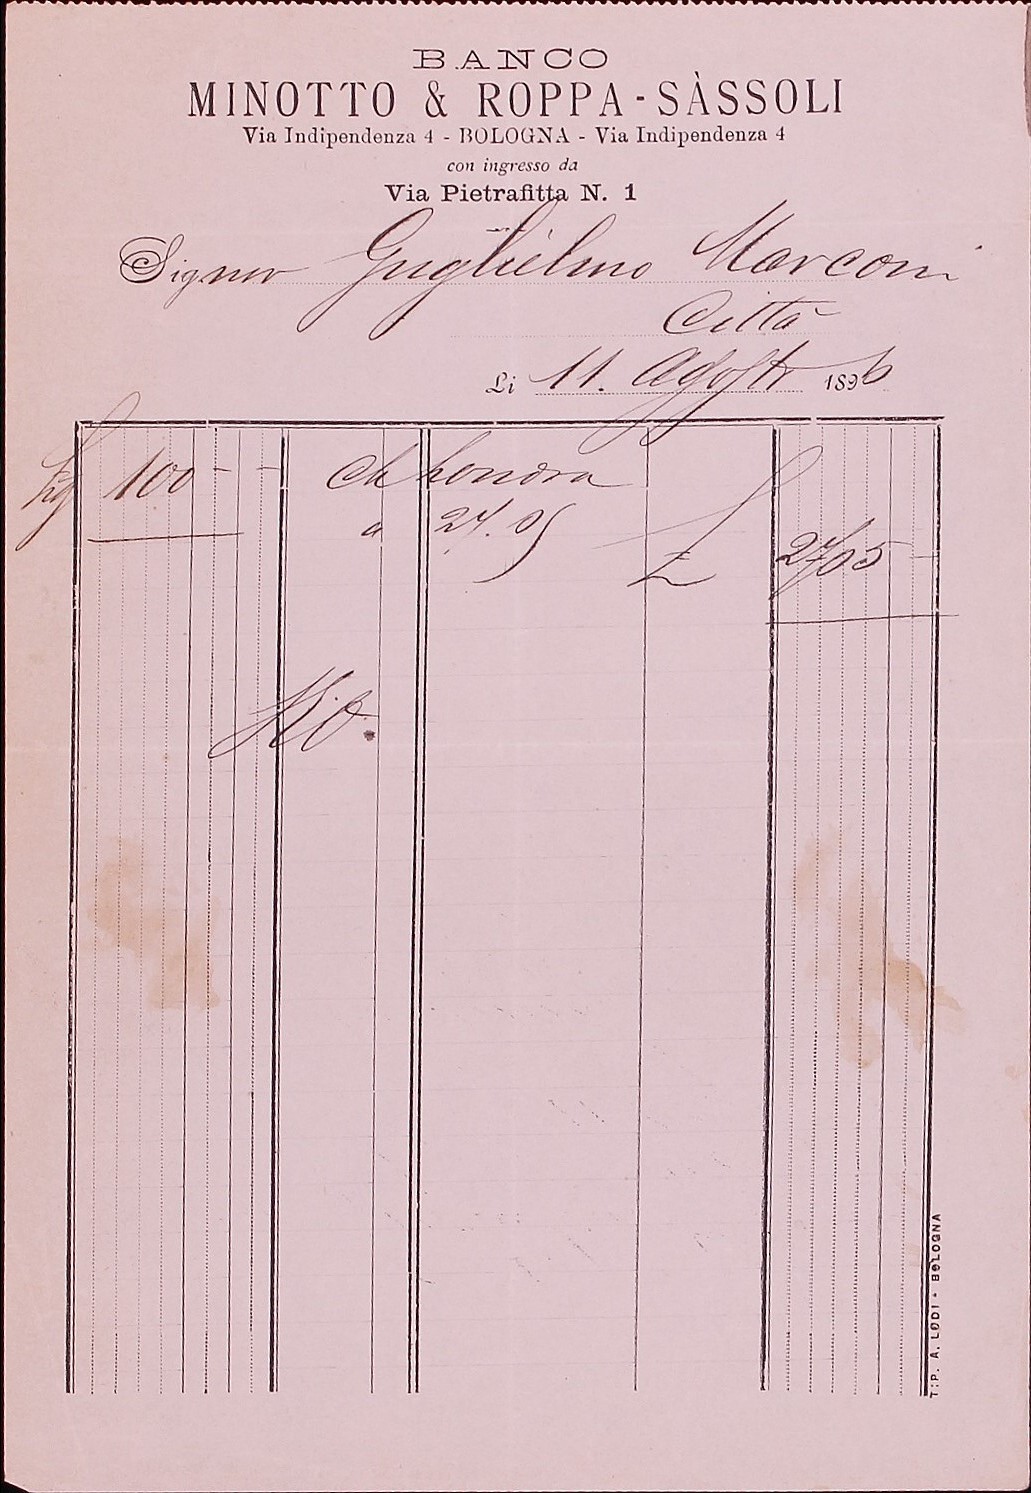 BANCO
MINOTTO & ROPPA-SÀSSOLI
Via Indipendenza 4 - BOLOGNA - Via Indipendenza 4
con ingresso da
Via Pietrafitta N. 1
Signor Guglielmo Marconi
Città
Li 11. Agosto 1896
100 - - Ch Londra
a 27.05 £ 2705 -
TIP. A. LODI - BOLOGNA